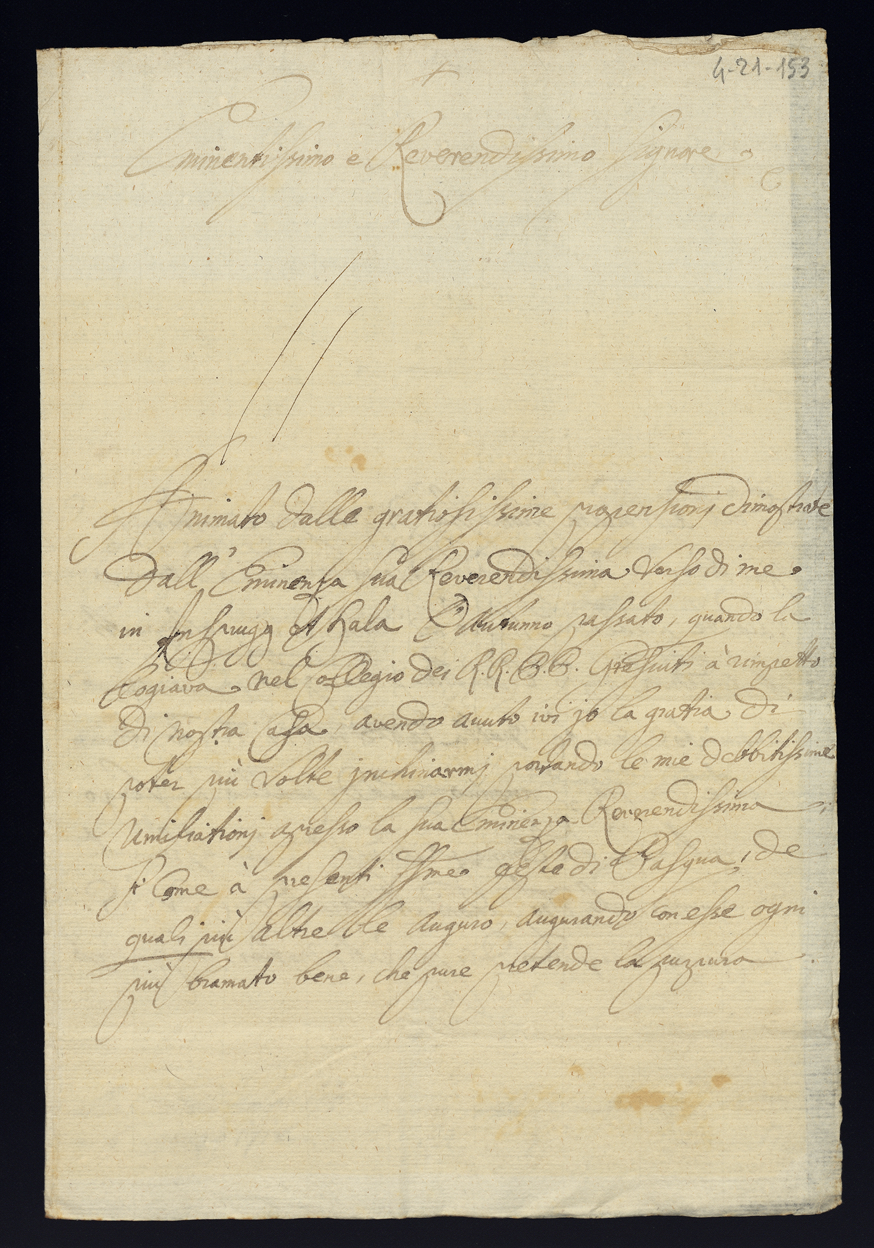 4-21-153
Eminentissimo e Reverendissimo Signore
Animato dalle gratiosissime propensionj dimostrate
dall' Eminenza sua Reverendissima verso di me
in Insprugg et Hala l'Autunno passato, quando la
logiava nel Collegio dei R.R.P.P. Giesuiti à rimpetto
di nostra Casa, avendo avuto ivi jo la gratia di
poter più volte jnchinarmj portando le mie debbitissime
Umiliationj apresso la sua Eminenza Reverendissima
si come à presenti feste di Pasqua, de
quali più altre le auguro, augurando con esse ogni
più bramato bene, che pure pretende la purpura